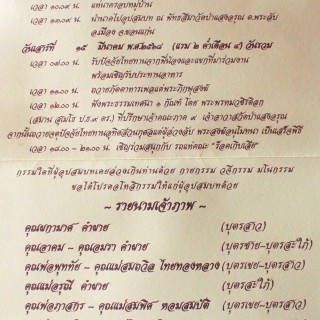 เวลา ๑๐.๐๙ น. แห่นาครอบหมู่บ้าน
เวลา ๑๐.๑๙ น. นำนาคไปอุปสมบท ณ พัทธสีมาวัดป่าแสงอรุณ ต.พระลับ
อ.เมือง จ.ขอนแก่น
วันเสาร์ที่ ๑๕ มีนาคม พ.ศ.๒๕๖๘ (แรม ๒ ค่ำเดือน ๔) วันรวม
เวลา ๐๗.๐๐ น. รับปัจจัยไทยทานจากพี่น้องและแขกที่มาร่วมงาน
พร้อมเชิญรับประทานอาหาร
เวลา ๑๑.๐๐ น. ถวายภัตตาหารเพลแด่พระภิกษุสงฆ์
เวลา ๑๒.๐๐ น. ฟังพระธรรมเทศนา ๑ กัณฑ์ โดย พระพรหมวชิรดิลก
(สมาน สุเมโธ ป.ธ.๙ ดร.) ที่ปรึกษาเจ้าคณะภาค ๙ เจ้าอาวาสวัดป่าแสงอรุณ
จากนั้นถวายจตุปัจจัยไทยทานอุทิศส่วนกุศลแด่ผู้ล่วงลับ พระสงฆ์อนุโมทนา เป็นเสร็จพิธี
เวลา ๑๘.๐๐ - ๒๑.๐๐ น. เชิญร่วมสนุกกับ รถแห่คณะ
กรรมใดที่ผู้อุปสมบทเคยล่วงเกินท่านด้วย กายกรรม วจีกรรม มโนกรรม
ขอได้โปรดอโหสิกรรมให้แก่ผู้อุปสมบทด้วย
~ รายนามเจ้าภาพ ~
คุณผกามาศ คำผาย (บุตรสาว)
คุณอาคม - คุณอมรา คำผาย (บุตรชาย-บุตรสะใภ้)
คุณพ่อพุททัย - คุณแม่สมถวิล ไทยทองหลาง (บุตรเขย-บุตรสาว)
คุณแม่อรุณี คำผาย (บุตรสะใภ้)
คุณพ่อภาสกร - คุณแม่สมพิศ หอมสมบัติ (บุตรเขย-บุตรสาว)